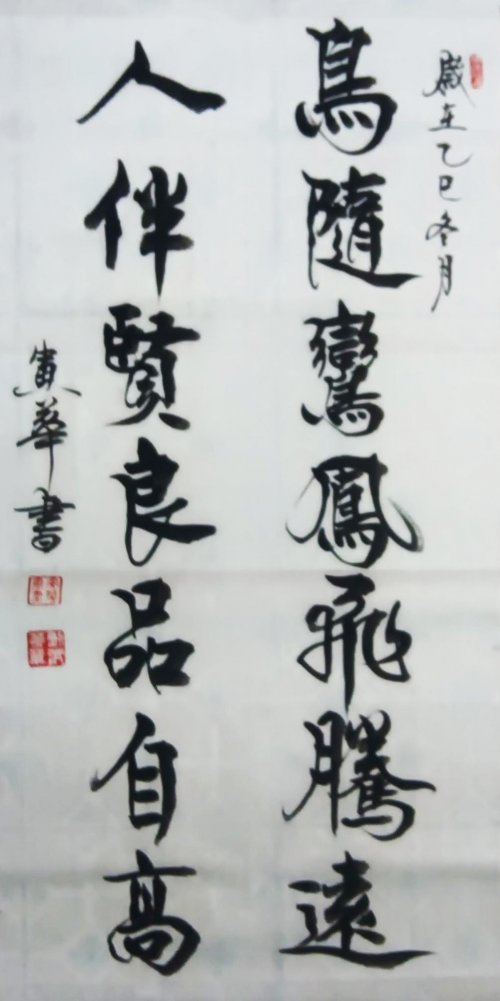 歲在乙巳冬月
鳥隨鸞鳳飛騰遠
人伴賢良品自高
寅華書